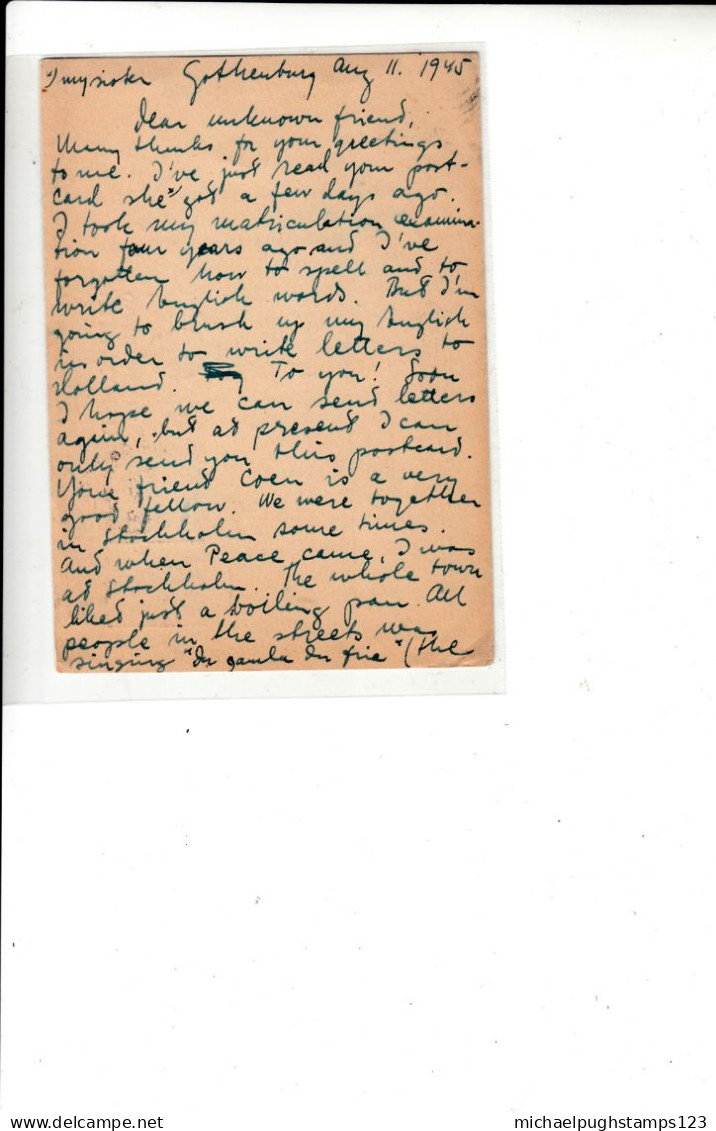 ") my sister Gothenburg Aug 11. 1945
Dear unknown friend,
Many thanks for your greetings
to me. I've just read your post-
card she ") got a few days ago.
I took my matriculation examina-
tion four years ago and I've
forgotten how to spell and to
write English words. But I'm
going to brush up my English
in order to write letters to
Holland. To you! Soon
I hope we can send letters
again, but at present I can
only send you this postcard.
Your friend Coen is a very
good fellow. We were together
in Stockholm some times.
And when Peace came, I was
at Stockholm. The whole town
liked just a boiling pan. All
people in the streets was
singing "du gamla du fria" (the
delcampe.net
michaelpughstamps123